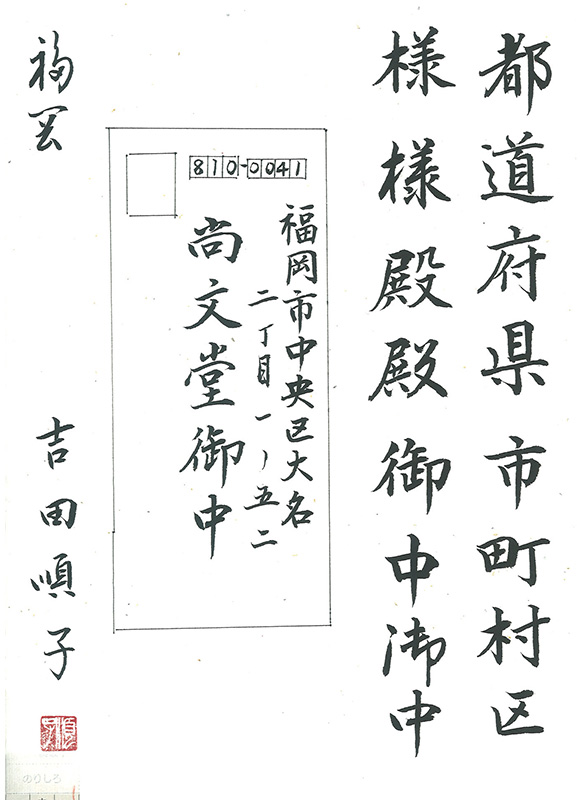 都道府県市町村区
様様殿殿御中御中
810-0041
福岡市中央区大名
二丁目一ノ五二
尚文堂御中
福岡
吉田順子
のりしろ